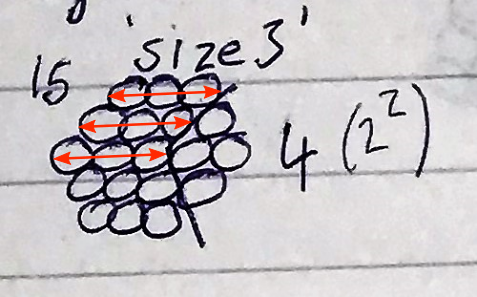 15 'size 3'
4 (2²)